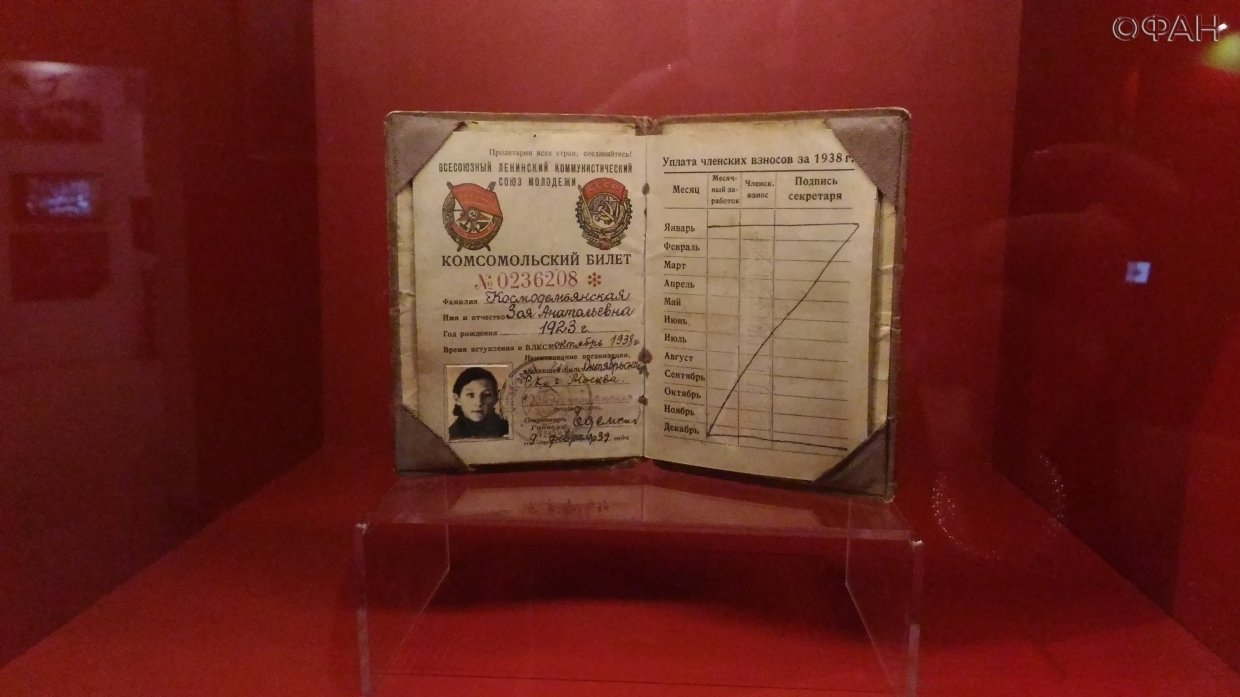 ©ФАН
Пролетарии всех стран, соединяйтесь!
ВСЕСОЮЗНЫЙ ЛЕНИНСКИЙ КОММУНИСТИЧЕСКИЙ
СОЮЗ МОЛОДЕЖИ
КОМСОМОЛЬСКИЙ БИЛЕТ
№ 0236208 *
Фамилия Космодемьянская
Имя и отчество Зоя Анатольевна
Год рождения 1923 г.
Время вступления в ВЛКСМ октябрь 1938 г.
Наименование организации,
выдавшей билет Октябрьский
Р.К. г Москва
9 февраля 39 года
Уплата членских взносов за 1938 г.
Месяц
Месяч-
ный за-
работок
Членск.
взнос
Подпись
секретаря
Январь
Февраль
Март
Апрель
Май
Июнь
Июль
Август
Сентябрь
Октябрь
Ноябрь
Декабрь